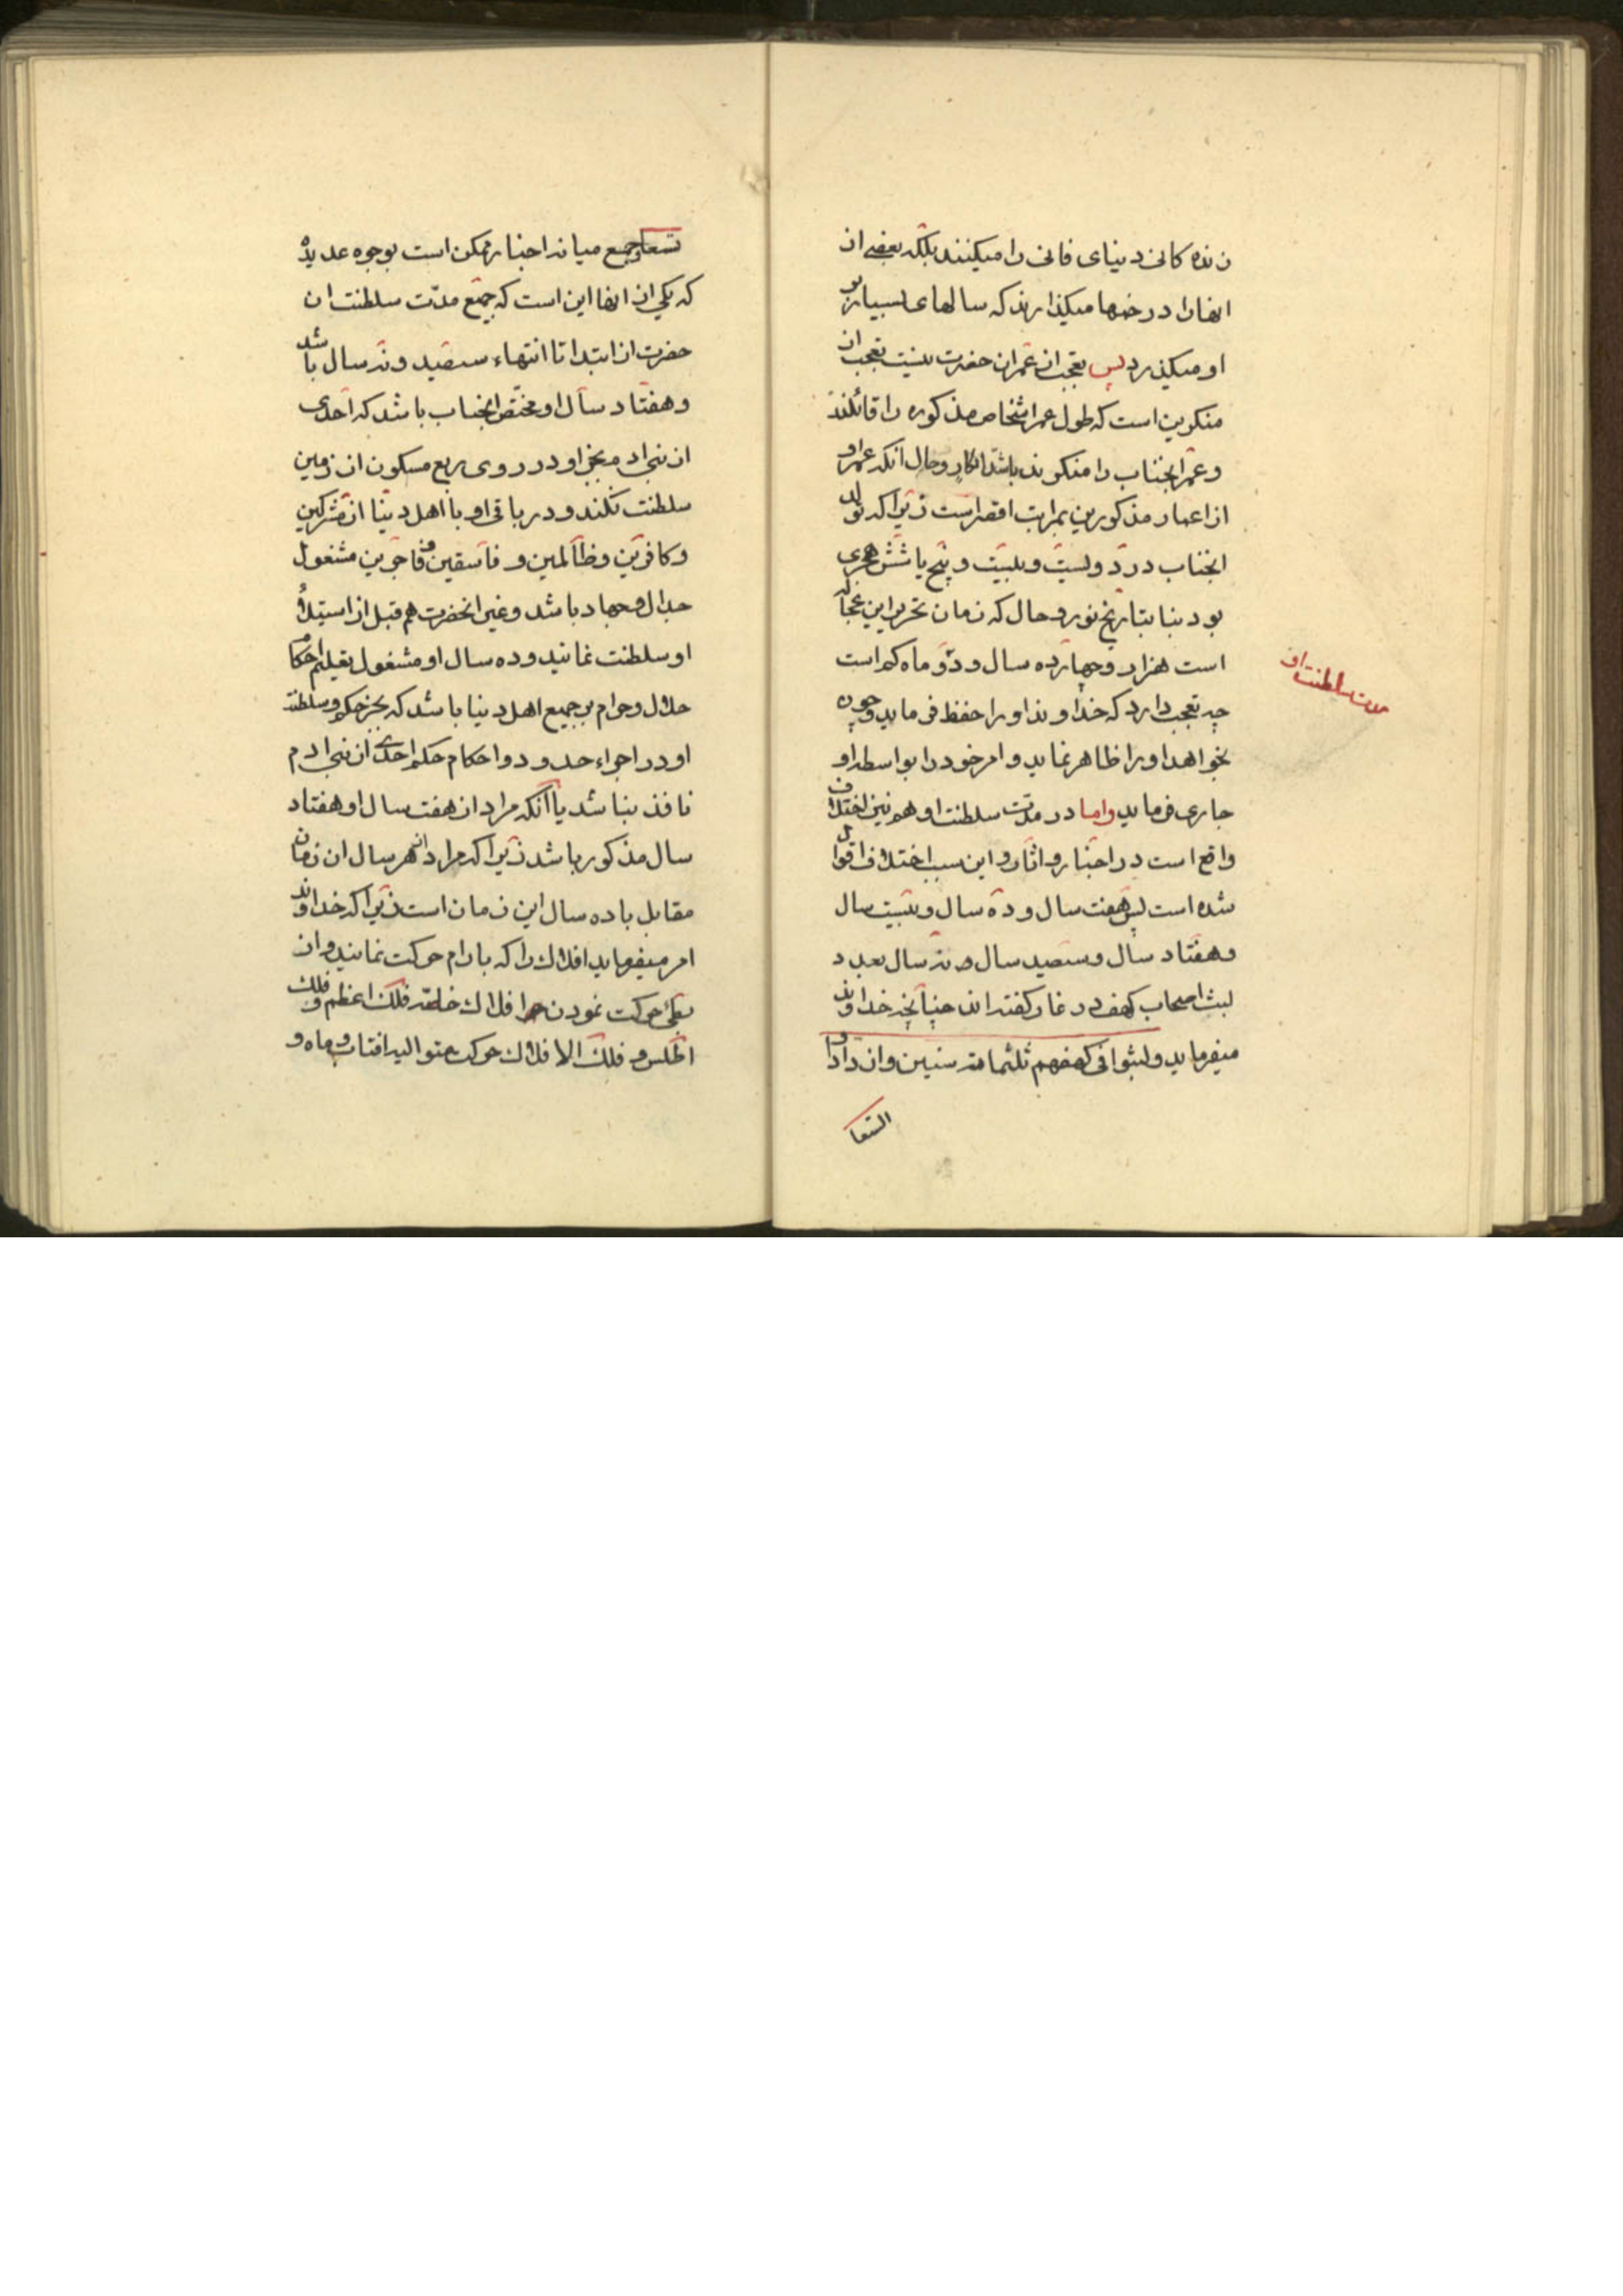 زنده کانی دنیای فانی را میکنند بلکه بعضی از
انها را درختها میکذارند که سالهای بسیار بر
او میکذرد پس تعجب از عمر ان حضرت نیست تعجب از
منکرین است که طول عمر اشخاص مذکوره را قائلند
و عمر انجناب را منکرند باشد انکار و حال آنکه عمر او
از اعمار مذکورین بمراتب اقصر است زیرا که تولد
انجناب در دویست و بیست و پنج یا شش هجری
بود بنا بتاریخ نور و حال که زمان تحریر این عجاله
است هزار و چهارده سال و دو ماه کم است
چه تعجب دارد که خداوند او را حفظ فرماید و چون
بخواهد او را ظاهر نماید و امر خود را بواسطه او
جاری فرماید واما در مدت سلطنت او هم نیز اختلاف
واقع است در اخبار و اثار و این سبب اختلاف اقوال
شده است پس هفت سال و ده سال و بیست سال
و هفتاد سال و سیصد سال و نه سال بعدد
لبث اصحاب کهف در غار کفته اند چنانچه خداوند
میفرماید ولبثوا فی کهفهم ثلثمائة سنین وازدادوا
التسعا
مدت سلطنت او
تسعا و جمع میانه اخبار ممکن است بوجوه عدیده
که یکی از انها این است که جمیع مدّت سلطنت ان
حضرت از ابتدا تا انتهاء سیصد و نه سال باشد
و هفتاد سال او مختص انجناب باشد که احدی
از بنی ادم بجز او در روی ربع مسکون از زمین
سلطنت نکند و در باقی او با اهل دنیا از مشرکین
و کافرین و ظالمین و فاسقین و فاجرین مشغول
جدال و جهاد باشد و غیر انحضرت هم قبل از استیلاء
او سلطنت نمایند و ده سال او مشغول بتعلیم احکام
حلال و حرام بر جمیع اهل دنیا باشد که بجز حکم و سلطنت
او در اجراء حدود و احکام حکم احدی از بنی ادم
نافذ نباشد یا آنکه مراد از هفت سال او هفتاد
سال مذکور باشد زیرا که مراد از هر سال ان زمان
مقابل با ده سال این زمان است زیرا که خداوند
امر میفرماید افلاك را که بارام حرکت نمایند و از
بطئ حرکت نمودن افلاك خاصّه فلك اعظم و فلك
اطلس و فلك الافلاك حرکت متوالیه افتاب و ماه و